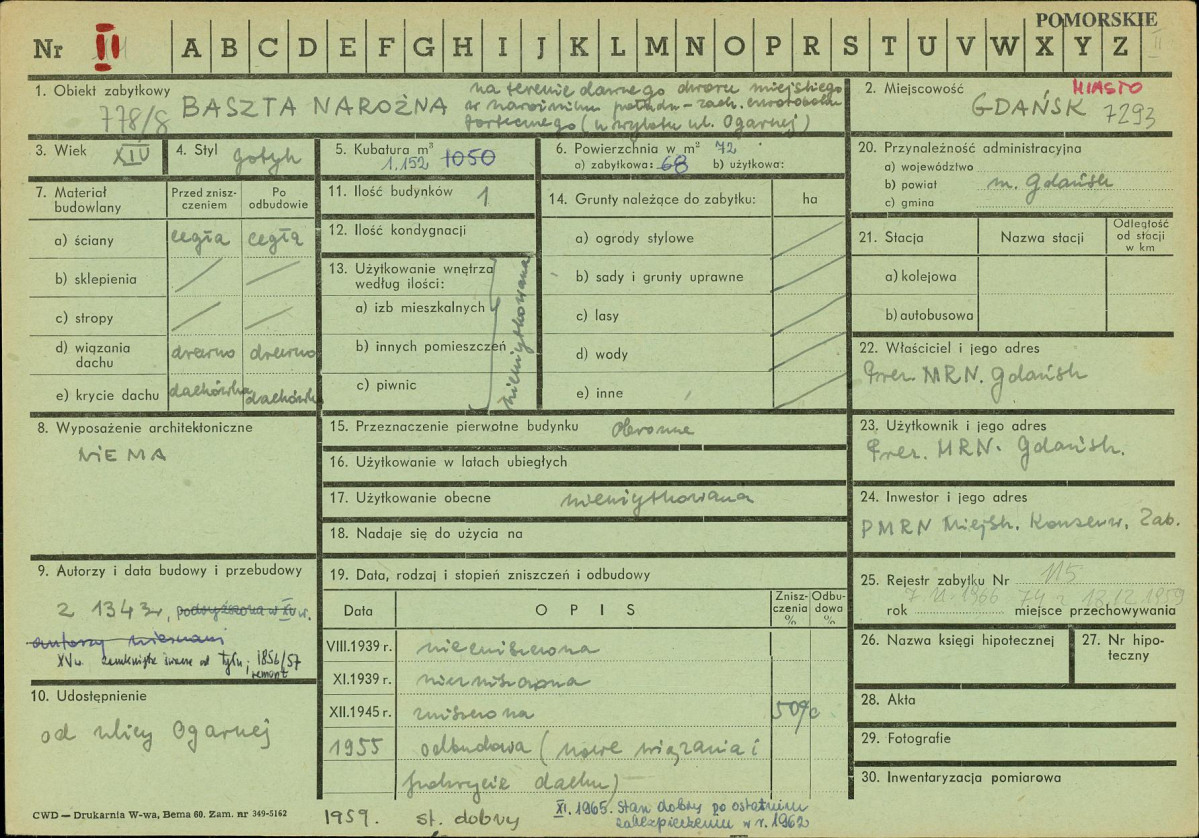 POMORSKIE
Nr II A B C D E F G H I J K L M N O P R S T U V W X Y Z
II
1. Obiekt zabytkowy
778/8
BASZTA NAROŻNA
na terenie dawnego dworu miejskiego
w narożniku połudn-zach. czworoboku
fortecznego (u wylotu ul. Ogarnej)
2. Miejscowość MIASTO
GDAŃSK 7293
3. Wiek XIV
4. Styl gotyk
5. Kubatura m³
1.152 1050
6. Powierzchnia w m² 72
a) zabytkowa: 68 b) użytkowa:
20. Przynależność administracyjna
a) województwo
b) powiat m. Gdańsk
c) gmina
7. Materiał budowlany
Przed znisz-
czeniem
Po
odbudowie
a) ściany cegła cegła
b) sklepienia
c) stropy
d) wiązania
dachu drewno drewno
e) krycie dachu dachówka dachówka
11. Ilość budynków 1
12. Ilość kondygnacji
13. Użytkowanie wnętrza
według ilości:
a) izb mieszkalnych
b) innych pomieszczeń
c) piwnic
nieużytkowana
14. Grunty należące do zabytku: ha
a) ogrody stylowe
b) sady i grunty uprawne
c) lasy
d) wody
e) inne
21. Stacja Nazwa stacji
Odległość
od stacji
w km
a) kolejowa
b) autobusowa
22. Właściciel i jego adres
Prez. MRN. Gdańsk
8. Wyposażenie architektoniczne
NIE MA
15. Przeznaczenie pierwotne budynku obronne
16. Użytkowanie w latach ubiegłych
17. Użytkowanie obecne nieużytkowana
18. Nadaje się do użycia na
23. Użytkownik i jego adres
Prez. MRN. Gdańsk.
24. Inwestor i jego adres
PMRN Miejsk. Konserw. Zab.
9. Autorzy i data budowy i przebudowy
z 1343r, podwyższona w XV w.
autorzy nieznani
XV w. zamknięte ścianą od tyłu; 1856/57
remont
10. Udostępnienie
od ulicy Ogarnej
19. Data, rodzaj i stopień zniszczeń i odbudowy
Data OPIS
Znisz-
czenia
%
Odbu-
dowa
%
VIII.1939 r. niezniszczona
XI.1939 r. niezniszczona
XII.1945 r. zniszczona 50%
1955 odbudowa (nowe wiązania i
pokrycie dachu)
1959. st. dobry
XI. 1965. Stan dobry po ostatnim
zabezpieczeniu w r. 1962
25. Rejestr zabytku Nr 115
7.11.1966 74 z 12.12.1959
rok miejsce przechowywania
26. Nazwa księgi hipotecznej
27. Nr hipo-
teczny
28. Akta
29. Fotografie
30. Inwentaryzacja pomiarowa
CWD — Drukarnia W-wa, Bema 60. Zam. nr 349-5162